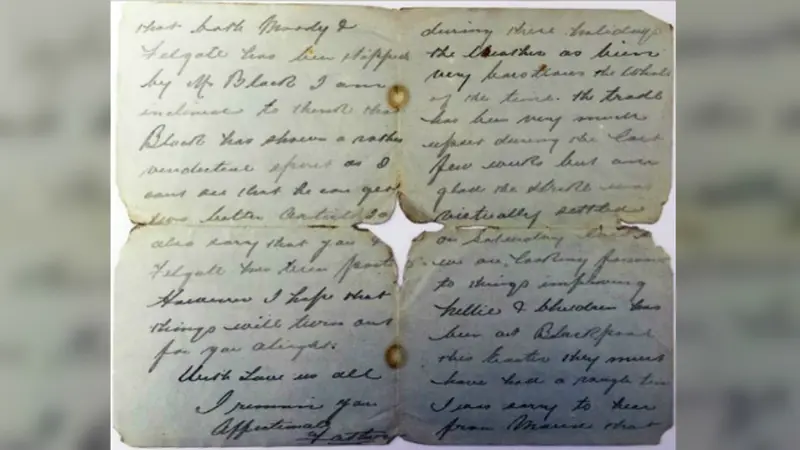 that both Moody &
Felgate has been stopped
by Mr Black I am
inclined to think that
Black has shown a rather
vindictive spirit as I
cant see that he can get
two better artists
also sorry that you &
Felgate has been
However I hope that
things will turn out
for you alright.
With Love us all
I remain you
Affectionate Father
during these holidays
the weather as been
very boistrous the whole
of the time. the trade
has been very much
upset during the last
few weeks but am
glad the strike was
virtually settled
on Saturday last &
we are looking forward
to things improving
Nellie & Children has
been at Blackpool
this Easter they must
have had a rough time
I was sorry to hear
from that